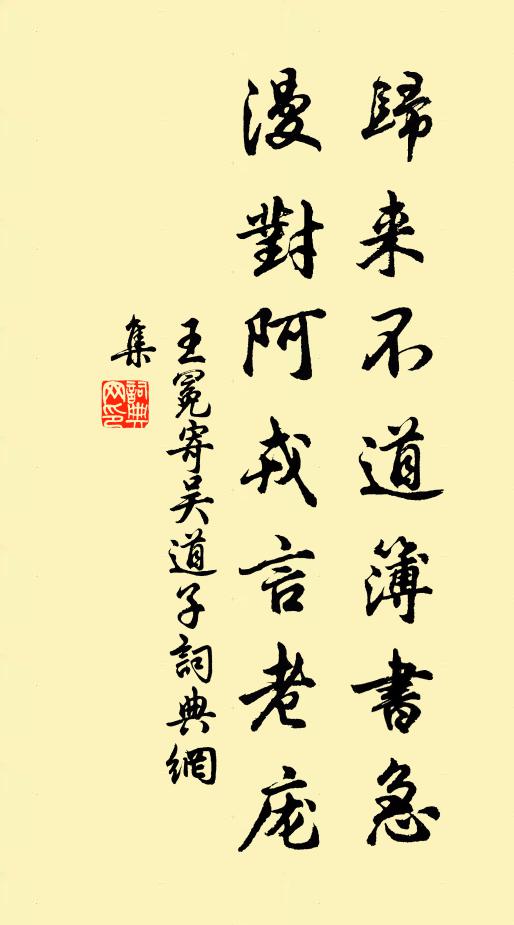 歸来不道簿書急
漫對阿戎言老庞
王冕寄吴道子詞典網
集
詞典
网印